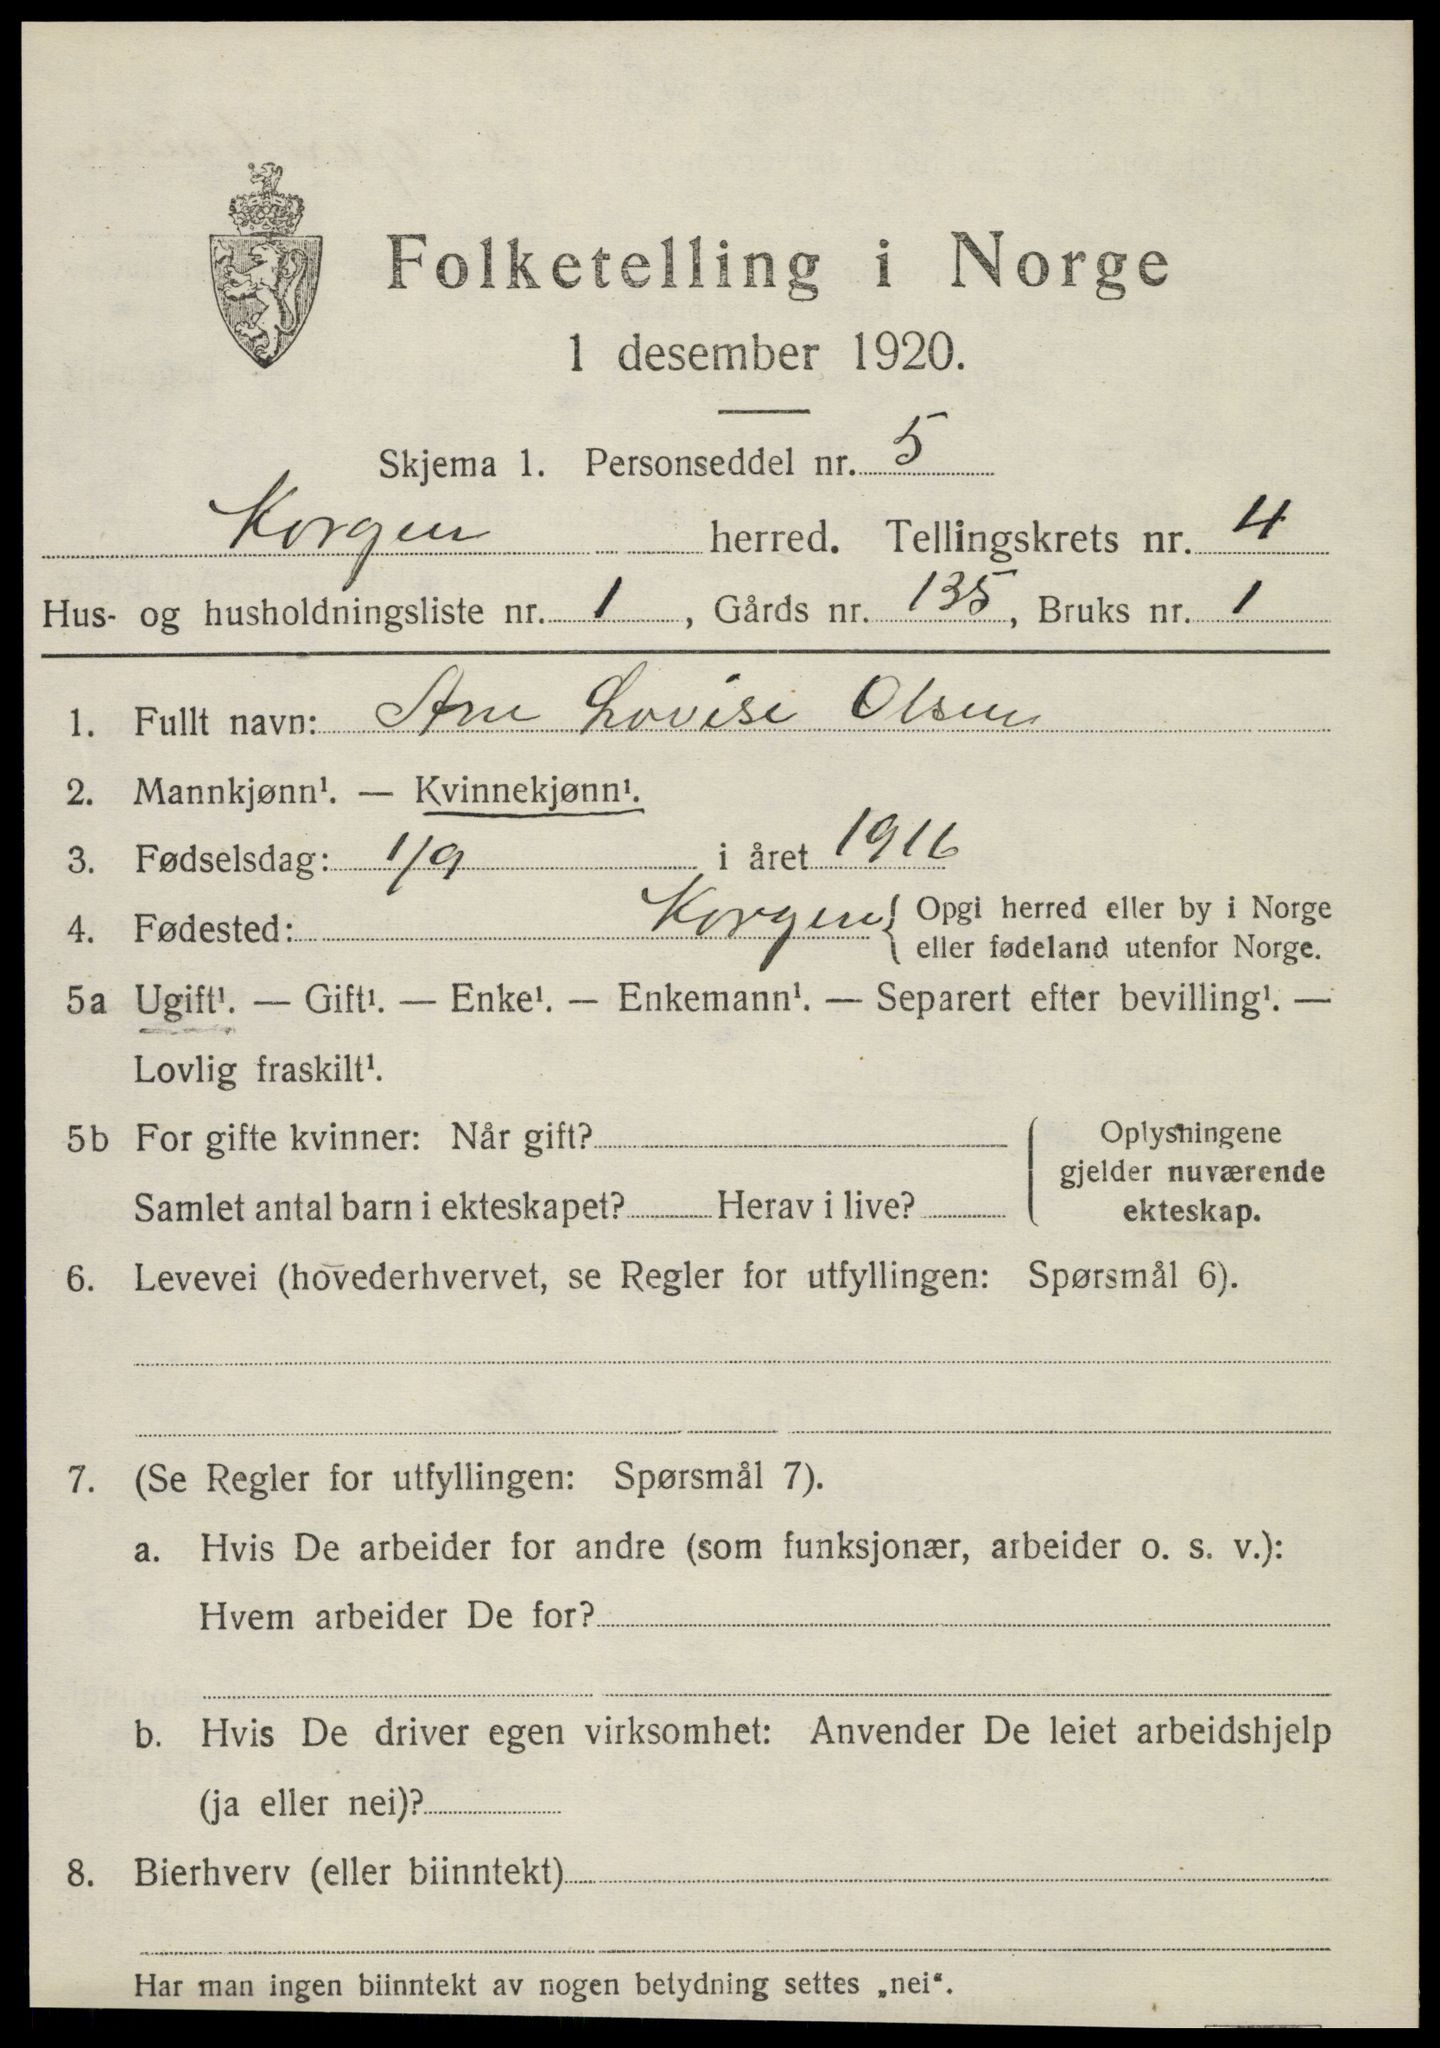 Folketelling i Norge
1 desember 1920.
Skjema 1. Personseddel nr. 5
Korgen herred. Tellingskrets nr. 4
Hus- og husholdningsliste nr. 1, Gårds nr. 135, Bruks nr. 1
1. Fullt navn: Ane Lovise Olsen
2. Mannkjønn¹. — Kvinnekjønn¹.
3. Fødselsdag: 1/9 i året 1916
4. Fødested: Korgen { Opgi herred eller by i Norge
eller fødeland utenfor Norge.
5a Ugift¹. — Gift¹. — Enke¹. — Enkemann¹. — Separert efter bevilling¹. —
Lovlig fraskilt¹.
5b For gifte kvinner: Når gift?
Samlet antal barn i ekteskapet? Herav i live?
Oplysningene
gjelder nuværende
ekteskap.
6. Levevei (hovederhvervet, se Regler for utfyllingen: Spørsmål 6).
7. (Se Regler for utfyllingen: Spørsmål 7).
a. Hvis De arbeider for andre (som funksjonær, arbeider o. s. v.):
Hvem arbeider De for?
b. Hvis De driver egen virksomhet: Anvender De leiet arbeidshjelp
(ja eller nei)?
8. Bierhverv (eller biinntekt)
Har man ingen biinntekt av nogen betydning settes „nei“.